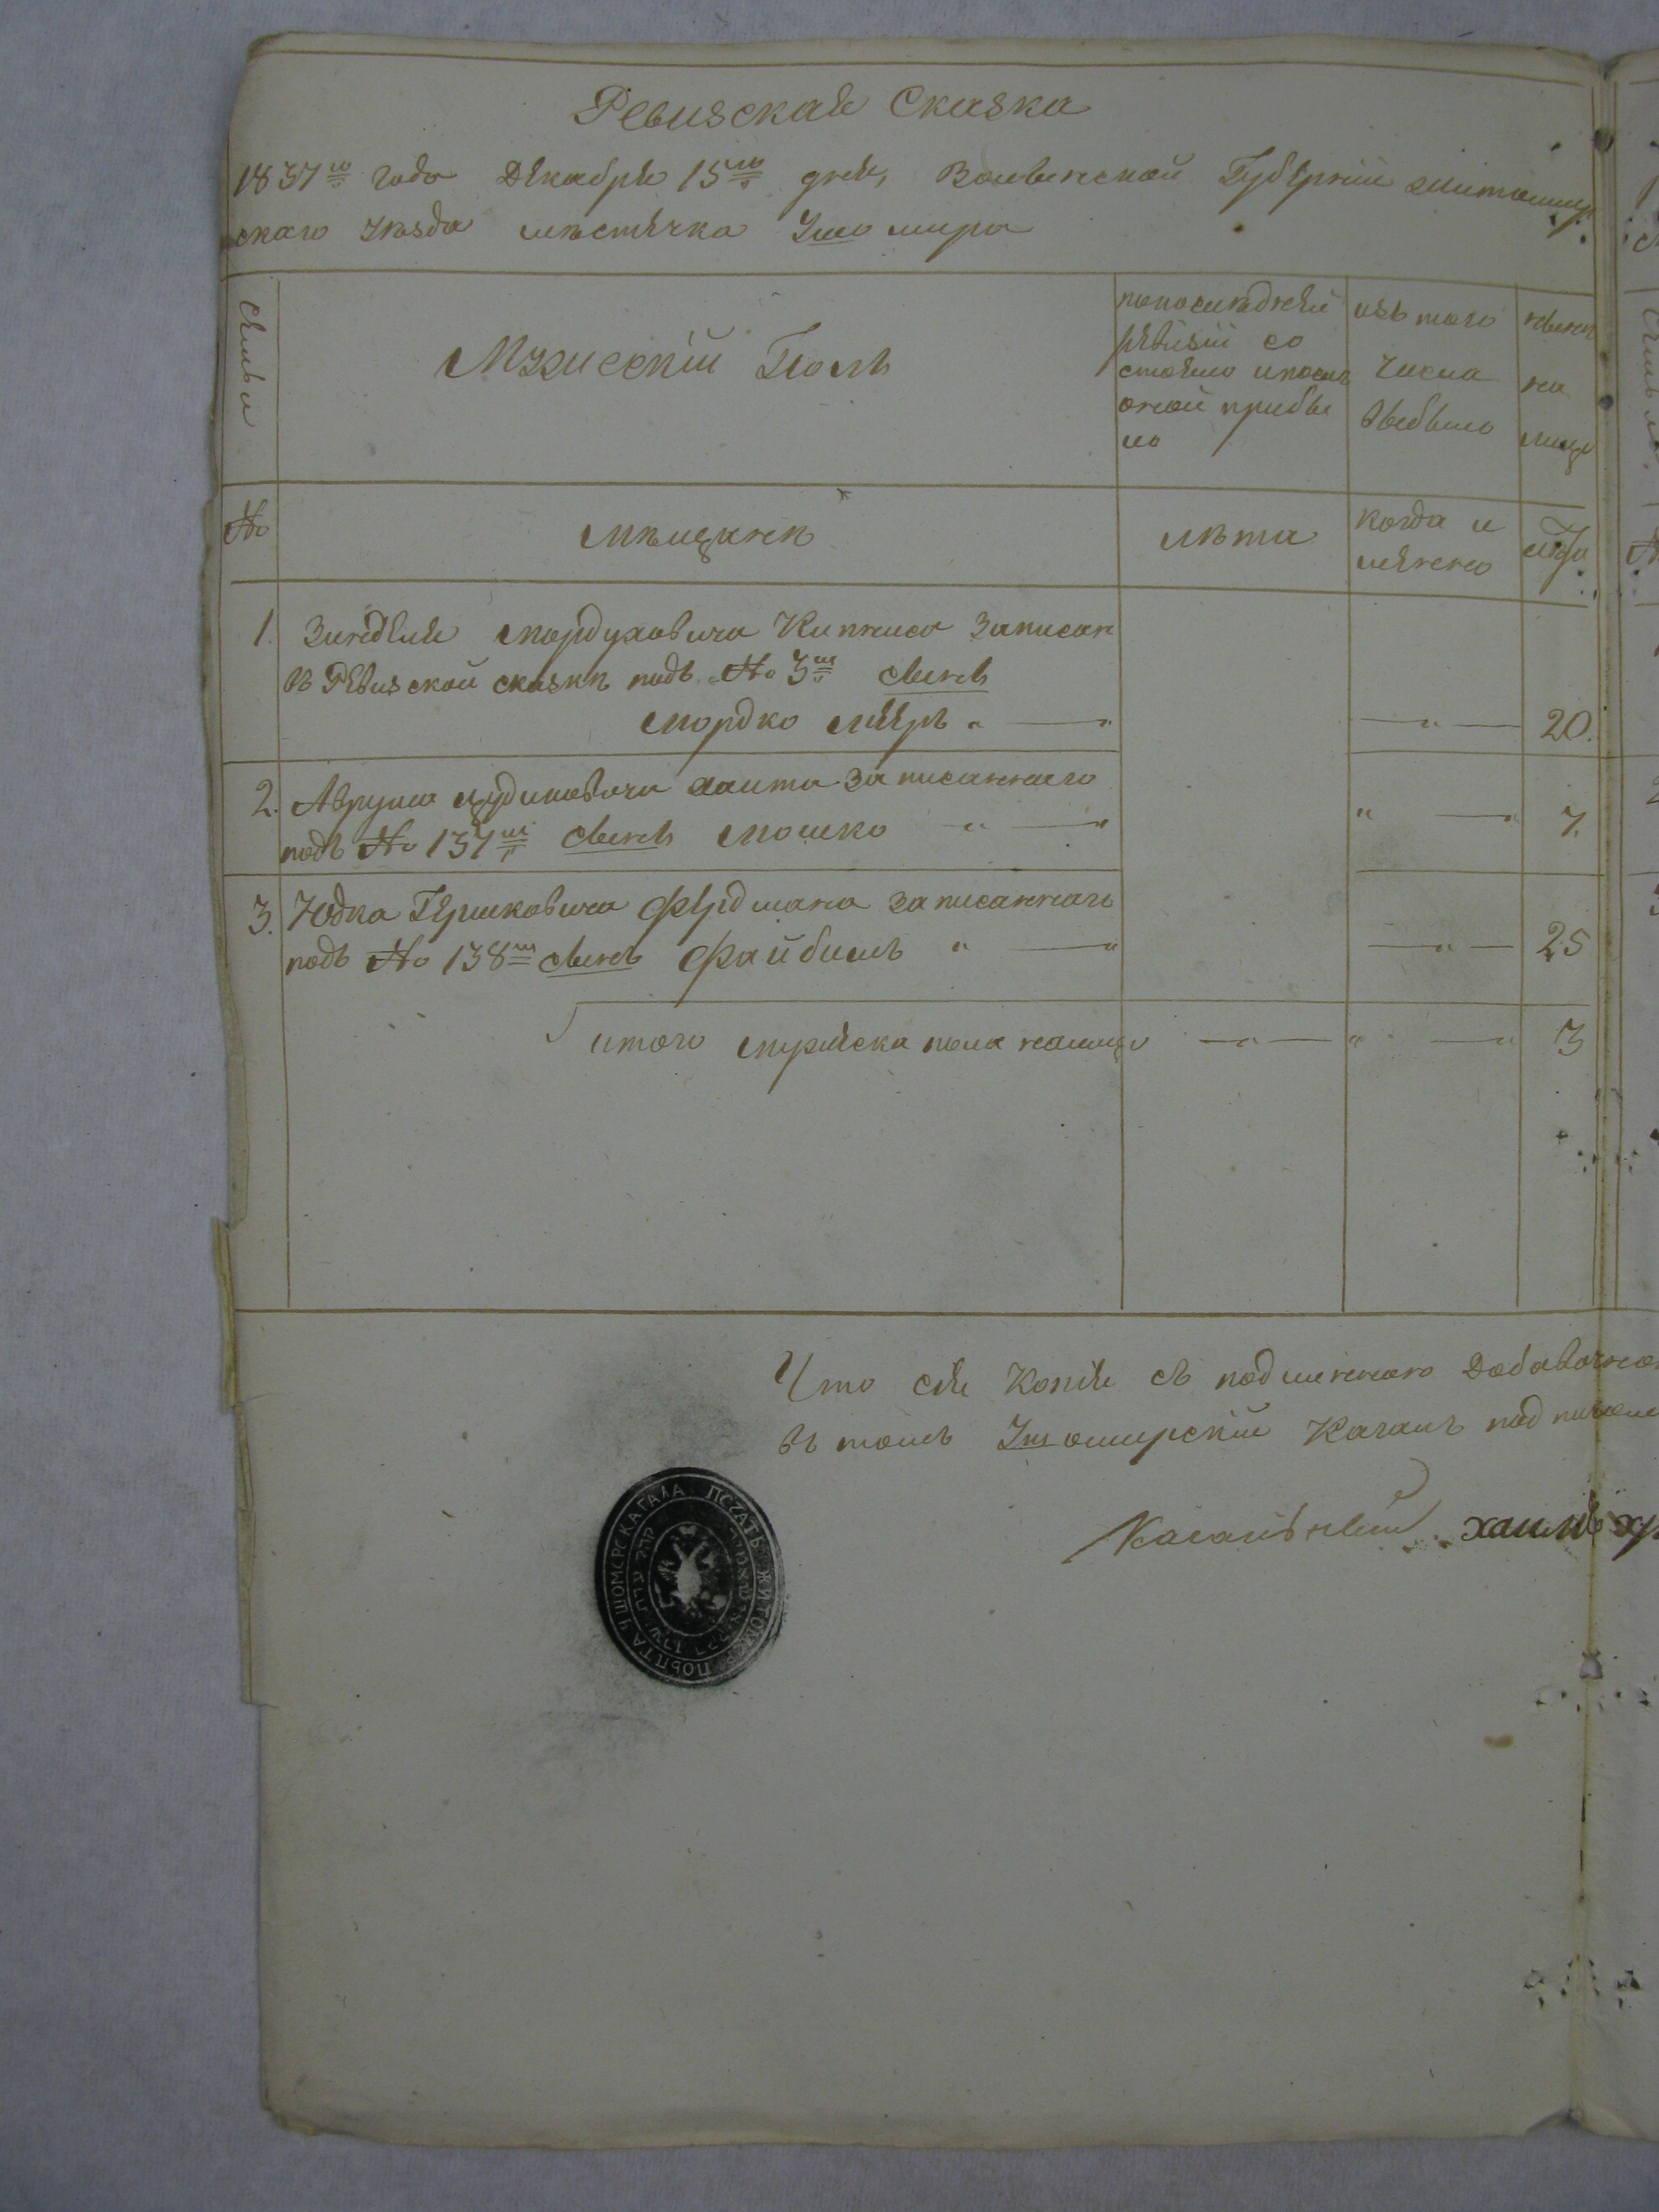 Ревизская Сказка
1837го года Декабря 15го дня, Волынской Губернии житомир
скаго уѣзда мѣстечка Ушомира
Семьи
Мужескій Полъ
попослѣдней
ревизіи со
стояло и послѣ
оной прибы
ло
изъ того
числа
выбыло
нынѣ
на
лицо
№
мѣщане
лѣта
когда и
менно
лѣта
1. Зинделя мордуховича Кипниса записан
въ Ревизской сказкѣ подъ № 3м сынъ
мордко мееръ " — " — " — 20.
2. Аврума дудиковича хаита записаннаго
подъ № 137м сынъ мошко — " — " " — " 7.
3. Юдка Гершковича Фридмана записаннаго
подъ № 138м сынъ Файбишъ " — " — " — 25
итого мужеска пола налицо — " — " — " 3
Что сія Копія съ подлиннаго Добавочно
въ томъ Ушомирскій Кагалъ подписомъ
Кагальный хаимъ
ПЕЧАТЬ ЖИТОМИР ПОВѢТА УШОМЕРСКАГАЛА